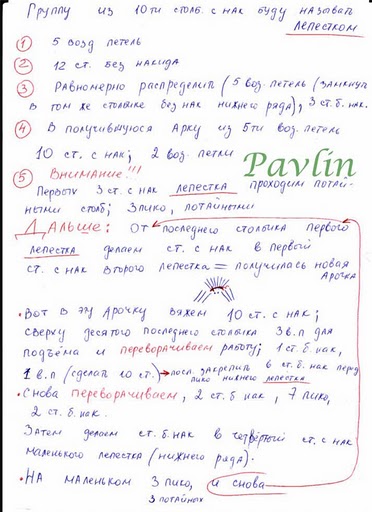 Группу из 10ти столб. с нак буду называть
лепестком
① 5 возд петель
② 12 ст. без накида
③ Равномерно распределит (5 воз. петель (замкнут
в том же столбике без нак нижнего ряда), 3 ст. б. нак.
④ В получившуюся Арку из 5ти воз. петель
10 ст. с нак; 2 воз. петли
Pavlin
⑤ Внимание!!!
Первых 3 ст. с нак лепестка проходим потай-
ными столб; 3 пико, потайными
Дальше: От последнего столбика первого
лепестка делаем ст. с нак в первый
ст. с нак второго лепестка = получилась новая
Арочка
• Вот в эту Арочку вяжем 10 ст. с нак;
сверху десятого последнего столбика 3 в.п для
подъёма и переворачиваем работу; 1 ст. б. нак,
1 в.п (сделать 10 ст.) → посл. закрепить 6 ст. б. нак перед
пико нижнего лепестка
• Снова переворачиваем, 2 ст. б нак, 7 пико,
2 ст. б. нак.
Затем делаем ст. б. нак в четвёртый ст. с нак
маленького лепестка (нижнего ряда).
• На маленьком 3 пико, и снова
3 потайных